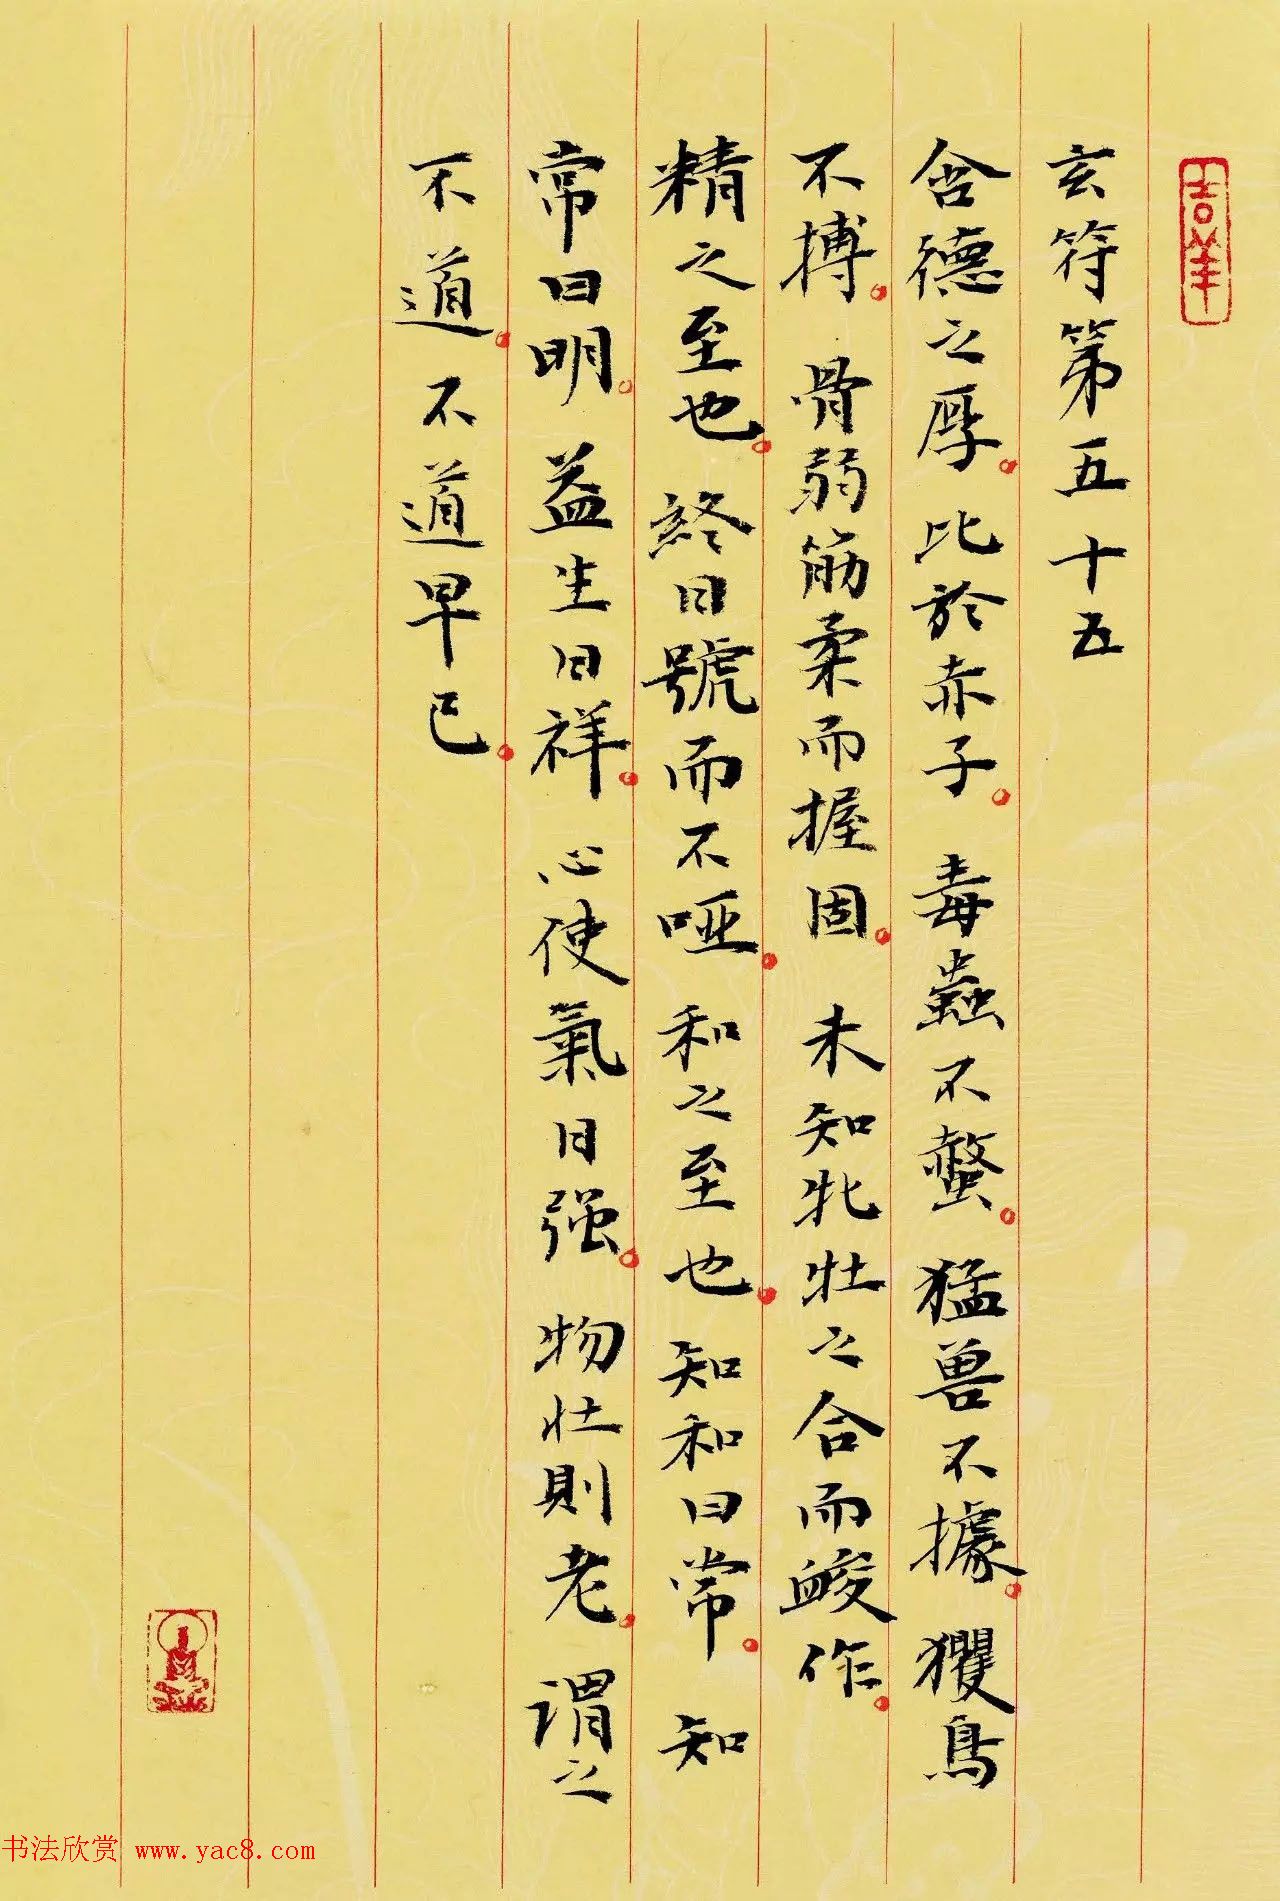 吉羊
玄符第五十五
含德之厚。比於赤子。毒蟲不螫。猛兽不據。玃鳥
不搏。骨弱筋柔而握固。未知牝牡之合而䘒作。
精之至也。終日號而不哑。和之至也。知和曰常。知
常曰明。益生曰祥。心使氣曰强。物壮則老。謂之
不道。不道早已。
书法欣赏 www.yac8.com